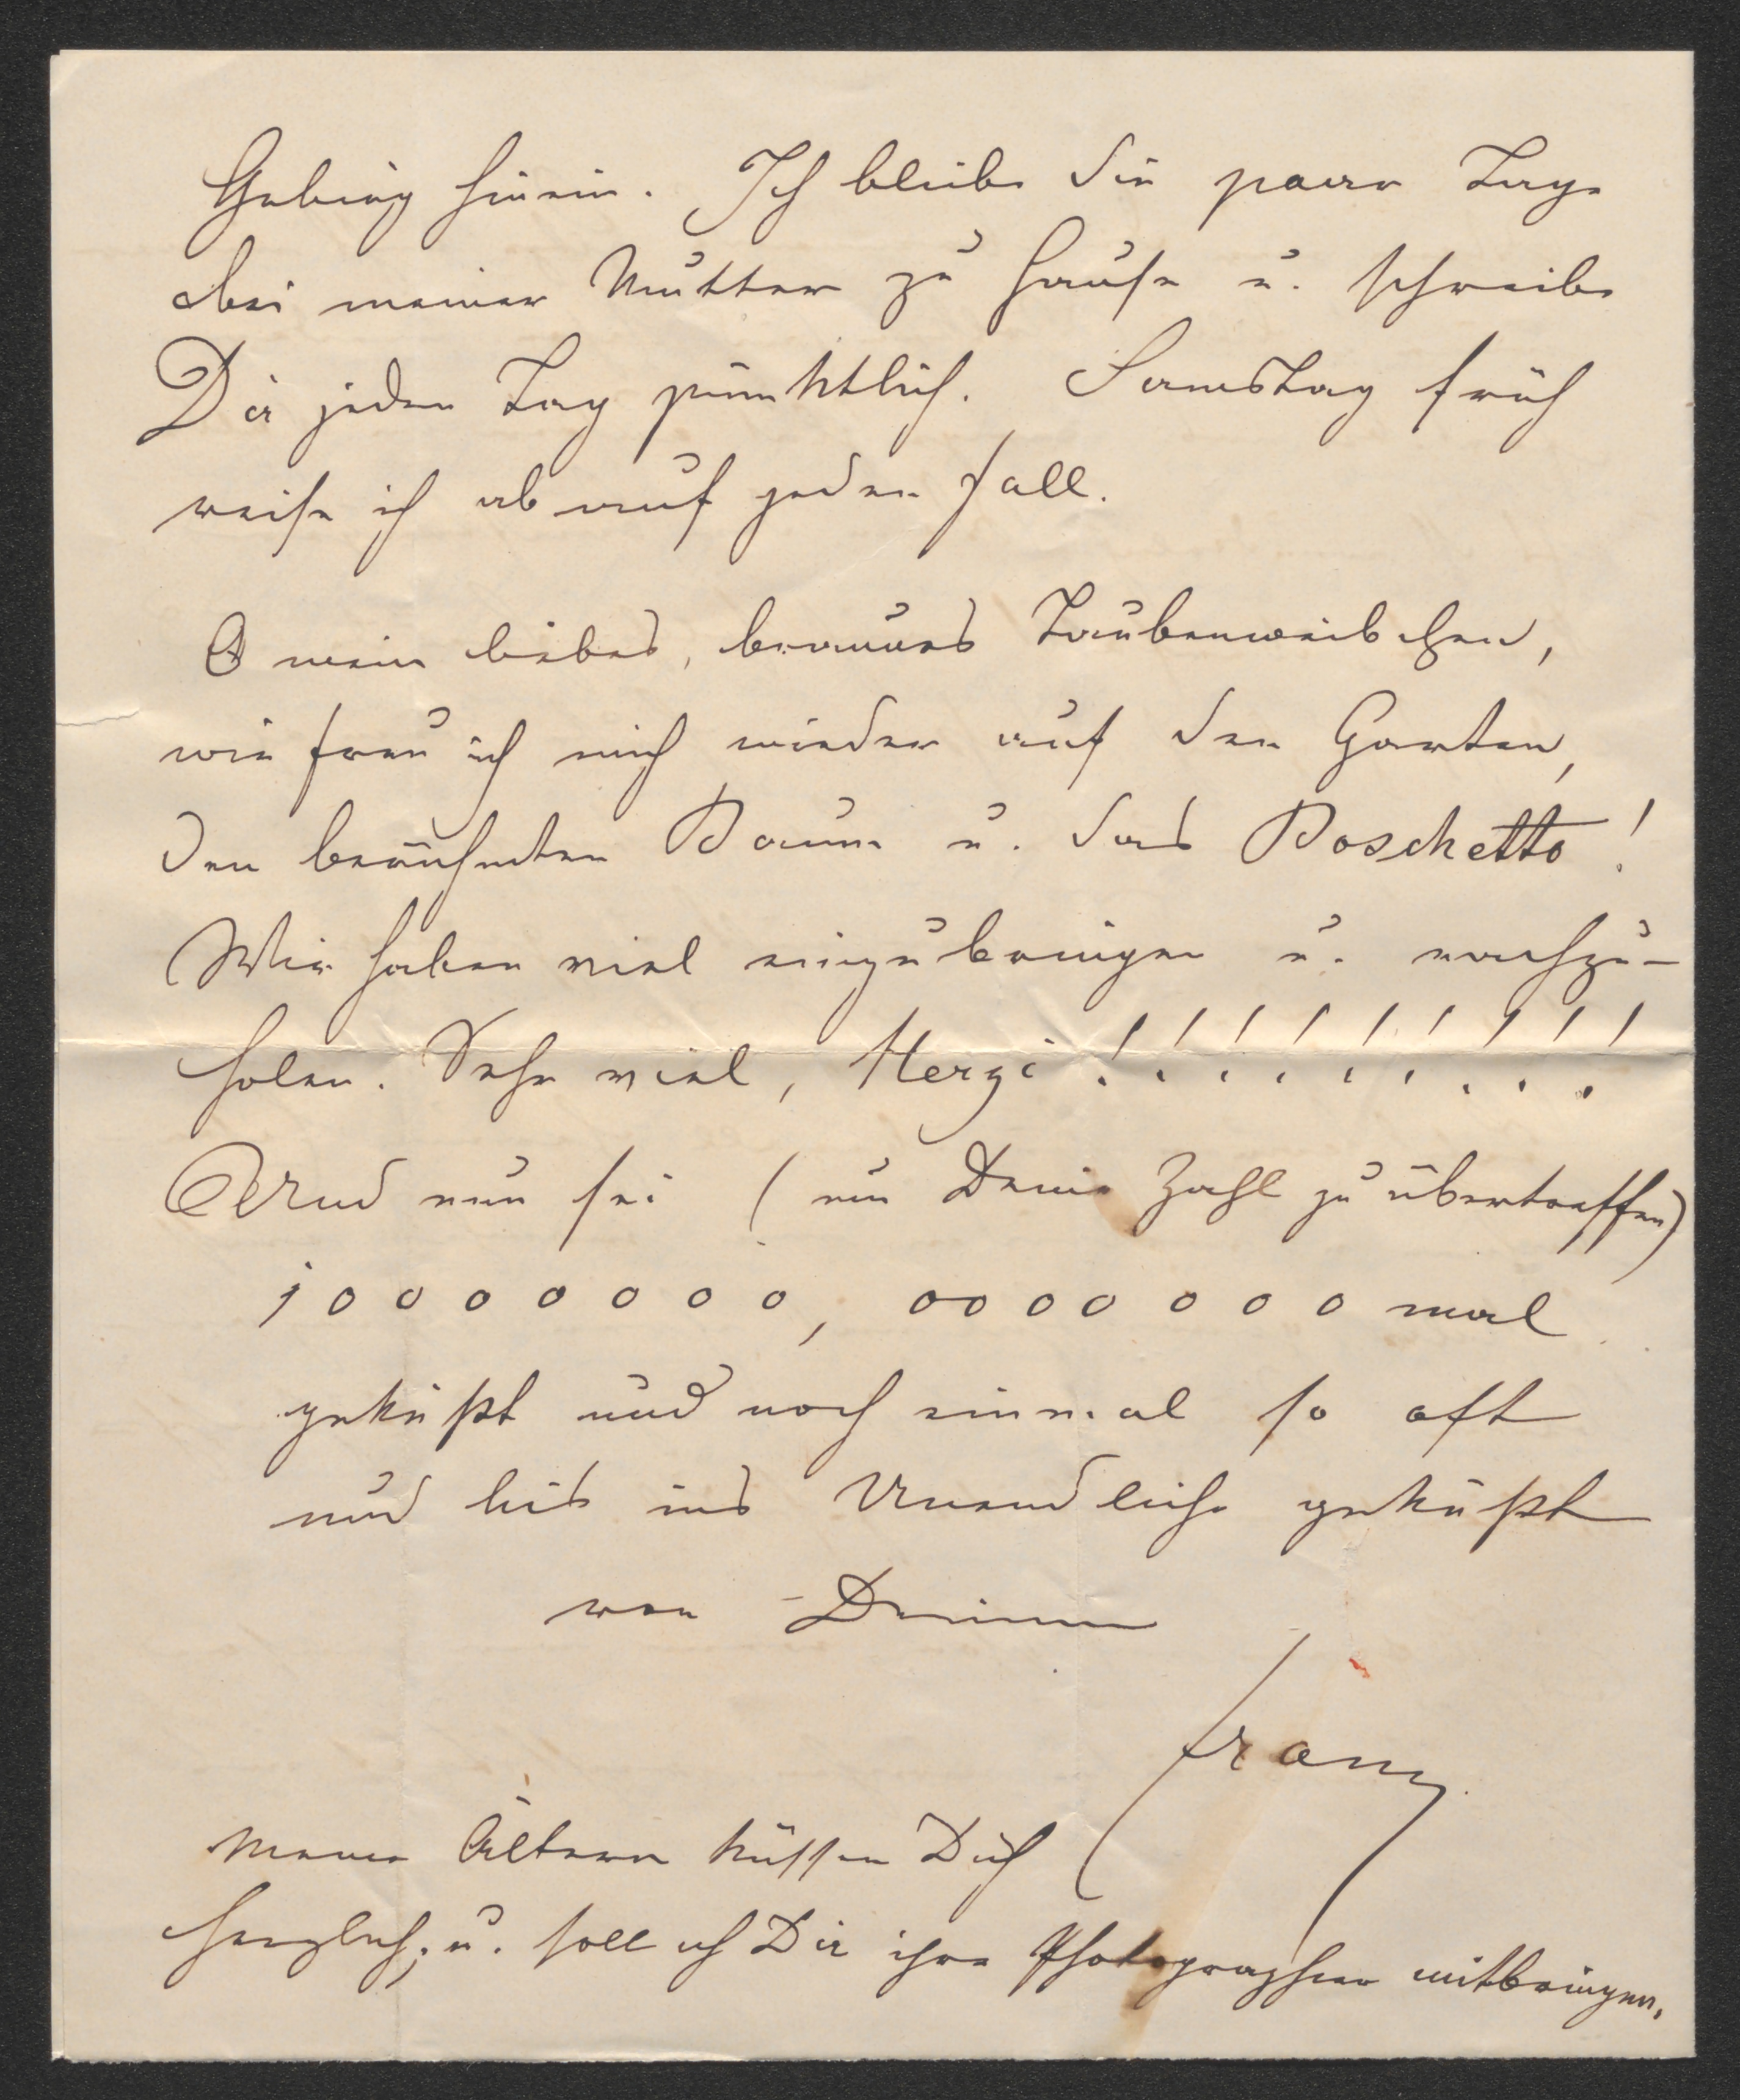 Gebirg hinein. Ich bleibe die paar Tage
bei meiner Mutter zu Hause u. schreibe
Dir jeden Tag pünktlich. Samstag früh
reise ich ab auf jeden Fall.
O mein liebes, braunes Taubenweibchen,
wie freu ich mich wieder auf den Garten,
den berühmten Baum u. das Boschetto!
Wir haben viel einzubringen u. nachzu-
holen. Sehr viel, Herzi!!!!!!!!!
Und nun sei (um Deine Zahl zu übertreffen)
10000000,0000000 mal
geküßt und noch einmal so oft
und bis ins Unendliche geküßt
von Deinem
Franz
Meine Ältern küssen Dich
herzlich; u. soll ich Dir ihre Photographien mitbringen.